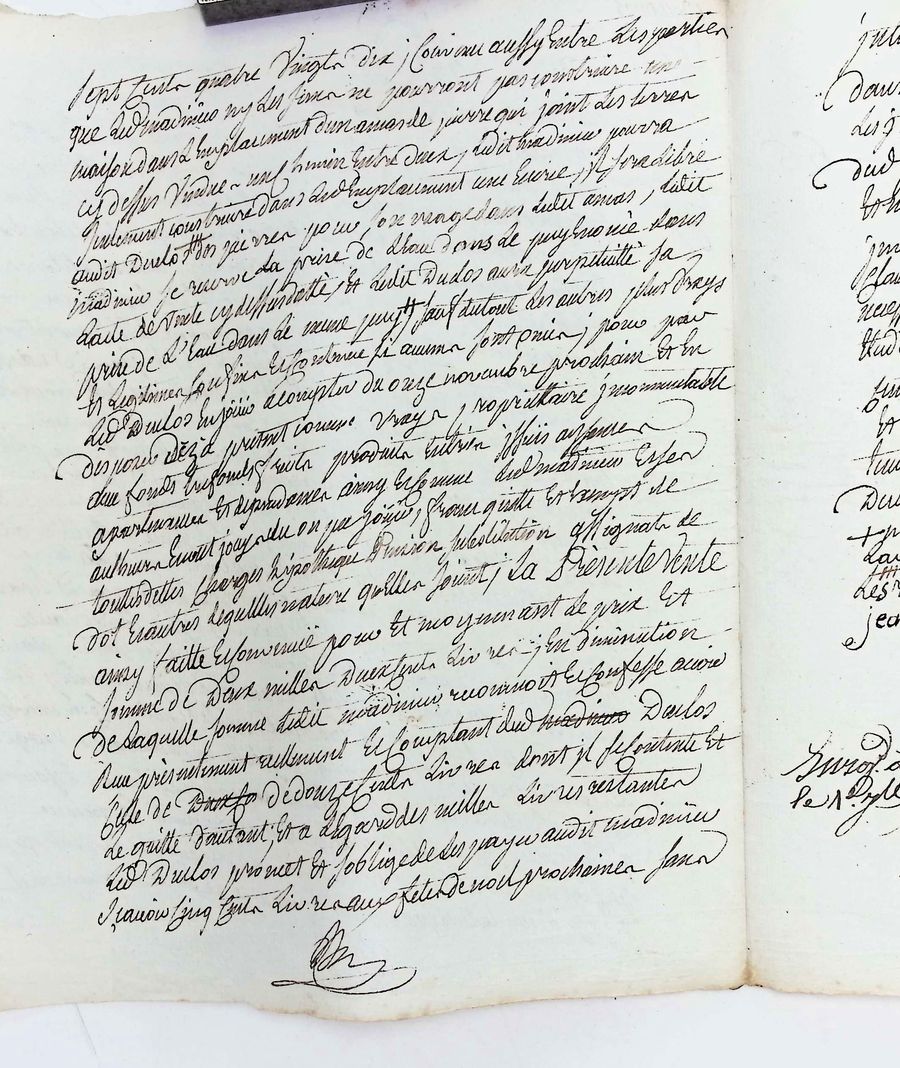 sept cents quatre vingts dix, Convenu aussy entre les parties
que led madinier ny les siens ne pourront pas construire une
maison dans l'Emplacement d'un amas de pierre qui joint les terres
cy dessus vendues un chemin entre deux, ledit madinier pourra
seulement construire dans led Emplacement une Ecurie, il sera libre
audit Duclos des pierres pour son usage dans ledit amas, ledit
madinier se reserve la prise de l'Eau dans le puy enoncé dans
l'acte de vente cy dessus datté, et ledit Duclos aura perpetuité sa
prise de l'Eau dans le meme puy sauf du tout les autres plus vrays
et Legitimes confins et Contenue si aucuns sont omis, pour par
led Duclos En jouir acompter du onze novembre prochain Et En
disposer dèz a présent comme vrays propriettaire jncommutable
aux fonds tres fonds fruits produits Entrées issuis aysences
apartenances et dependances ainsy et comme led madinier et ses
autheurs En ont jouys du on pu jouir, franc quitte et Exempt de
touttes dettes charges hipothique Pension substitution assignats de
dot et autres dequelles nature quelles soient, La Présente Vente
ainsy faitte et Convenuë pour et moyennant le prix et
somme de Deux milles Deux Cents Livres, En diminution
de Laquelle somme ledit madinier reconnoit et Confesse avoir
Reçu présentement rellement et Comptant dud madinier Duclos
Celle de de douze Cents Livres dont il se Contente Et
Le quitte d'autant, Et a L'égard des milles Livres restantes
led Duclos promet et s'oblige de les payer audit madinier
sçavoir Cinq Cents Livres aux fêtes de noel prochaines sans
jul
dans
Les
dud
Et
Et
Duc
Lad
Les
jea